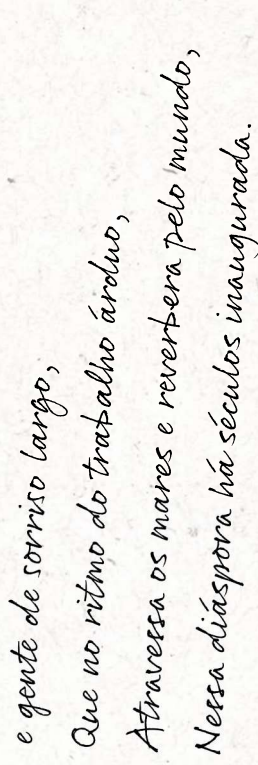 e gente de sorriso largo,
Que no ritmo do trabalho árduo,
Atravessa os mares e reverbera pelo mundo,
Nessa diáspora há séculos inaugurada.